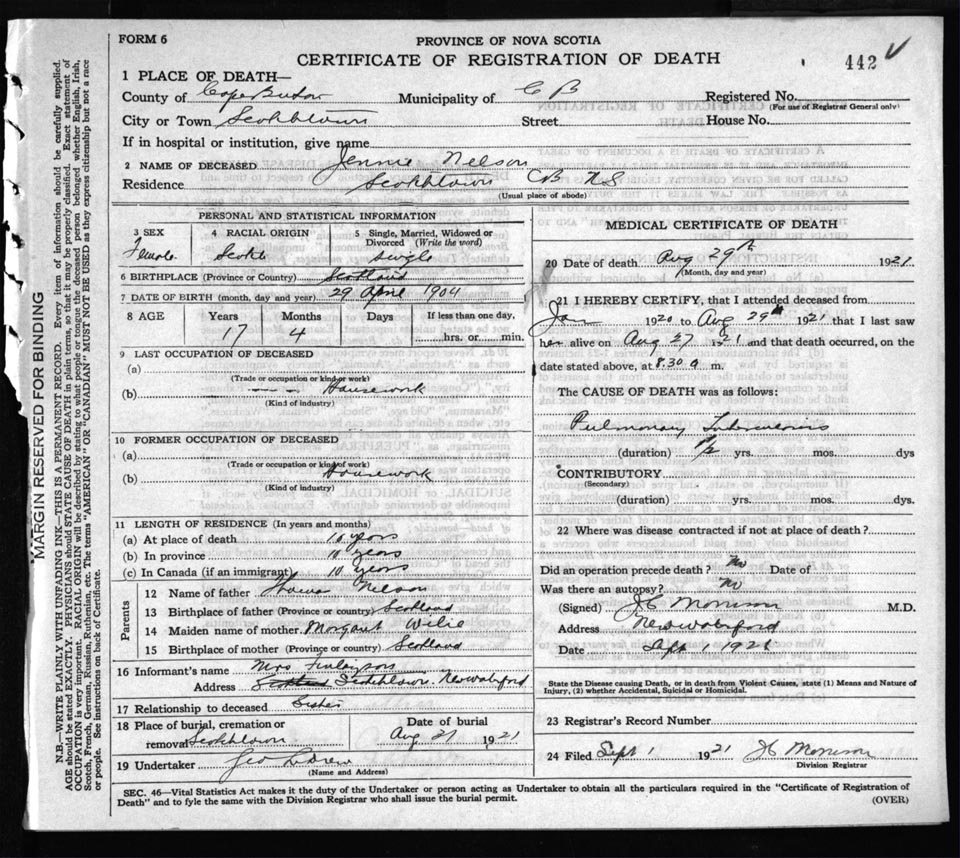 FORM 6
PROVINCE OF NOVA SCOTIA
CERTIFICATE OF REGISTRATION OF DEATH
442
1 PLACE OF DEATH—
County of Cape Breton Municipality of C B Registered No.
(For use of Registrar General only)
City or Town Scotchtown Street House No.
If in hospital or institution, give name
2 NAME OF DECEASED Jennie Nelson
Residence Scotchtown CB NS
(Usual place of abode)
PERSONAL AND STATISTICAL INFORMATION
3 SEX 4 RACIAL ORIGIN 5 Single, Married, Widowed or Divorced (Write the word)
Female Scotch single
6 BIRTHPLACE (Province or Country) Scotland
7 DATE OF BIRTH (month, day and year) 29 April 1904
8 AGE Years Months Days If less than one day,
17 4 hrs. or min.
9 LAST OCCUPATION OF DECEASED
(a)
(Trade or occupation or kind of work)
(b) Housework
(Kind of industry)
10 FORMER OCCUPATION OF DECEASED
(a)
(Trade or occupation or kind of work)
(b) Housework
(Kind of industry)
11 LENGTH OF RESIDENCE (In years and months)
(a) At place of death 10 years
(b) In province 10 years
(c) In Canada (if an immigrant) 10 years
Parents
12 Name of father Nelson
13 Birthplace of father (Province or country) Scotland
14 Maiden name of mother Margaret
15 Birthplace of mother (Province or country) Scotland
16 Informant's name Mrs Finlayson
Address Scotchtown. New Waterford
17 Relationship to deceased Sister
18 Place of burial, cremation or removal Scotchtown
Date of burial
Aug 31 1921
19 Undertaker Geo
(Name and Address)
MEDICAL CERTIFICATE OF DEATH
20 Date of death Aug 29th 1921
(Month, day and year)
21 I HEREBY CERTIFY, that I attended deceased from
Jan 1920 to Aug 29th 1921 that I last saw
her alive on Aug 27 1921 and that death occurred, on the
date stated above, at 8.30 a m.
The CAUSE OF DEATH was as follows:
Pulmonary Tuberculosis
(duration) 1½ yrs. mos. dys
CONTRIBUTORY
(Secondary)
(duration) yrs. mos. dys.
22 Where was disease contracted if not at place of death?
Did an operation precede death? No Date of
Was there an autopsy? No
(Signed) J C Morrison M.D.
Address New Waterford
Date Sept 1 1921
State the Disease causing Death, or in death from Violent Causes, state (1) Means and Nature of
Injury, (2) whether Accidental, Suicidal or Homicidal.
23 Registrar's Record Number
24 Filed Sept 1 1921 J C Morrison
Division Registrar
SEC. 46—Vital Statistics Act makes it the duty of the Undertaker or person acting as Undertaker to obtain all the particulars required in the "Certificate of Registration of
Death" and to fyle the same with the Division Registrar who shall issue the burial permit.
(OVER)
MARGIN RESERVED FOR BINDING
N.B.—WRITE PLAINLY WITH UNFADING INK—THIS IS A PERMANENT RECORD. Every item of information should be carefully supplied.
AGE should be stated EXACTLY. PHYSICIANS should STATE CAUSE OF DEATH in plain terms, so that it may be properly classified. Exact statement of
OCCUPATION is very important. RACIAL ORIGIN will be described by stating to what people or tongue the deceased person belonged whether English, Irish,
Scotch, French, German, Russian, Ruthenian, etc. The terms "AMERICAN" OR "CANADIAN" MUST NOT BE USED as they express citizenship but not a race
or people. See instructions on back of Certificate.